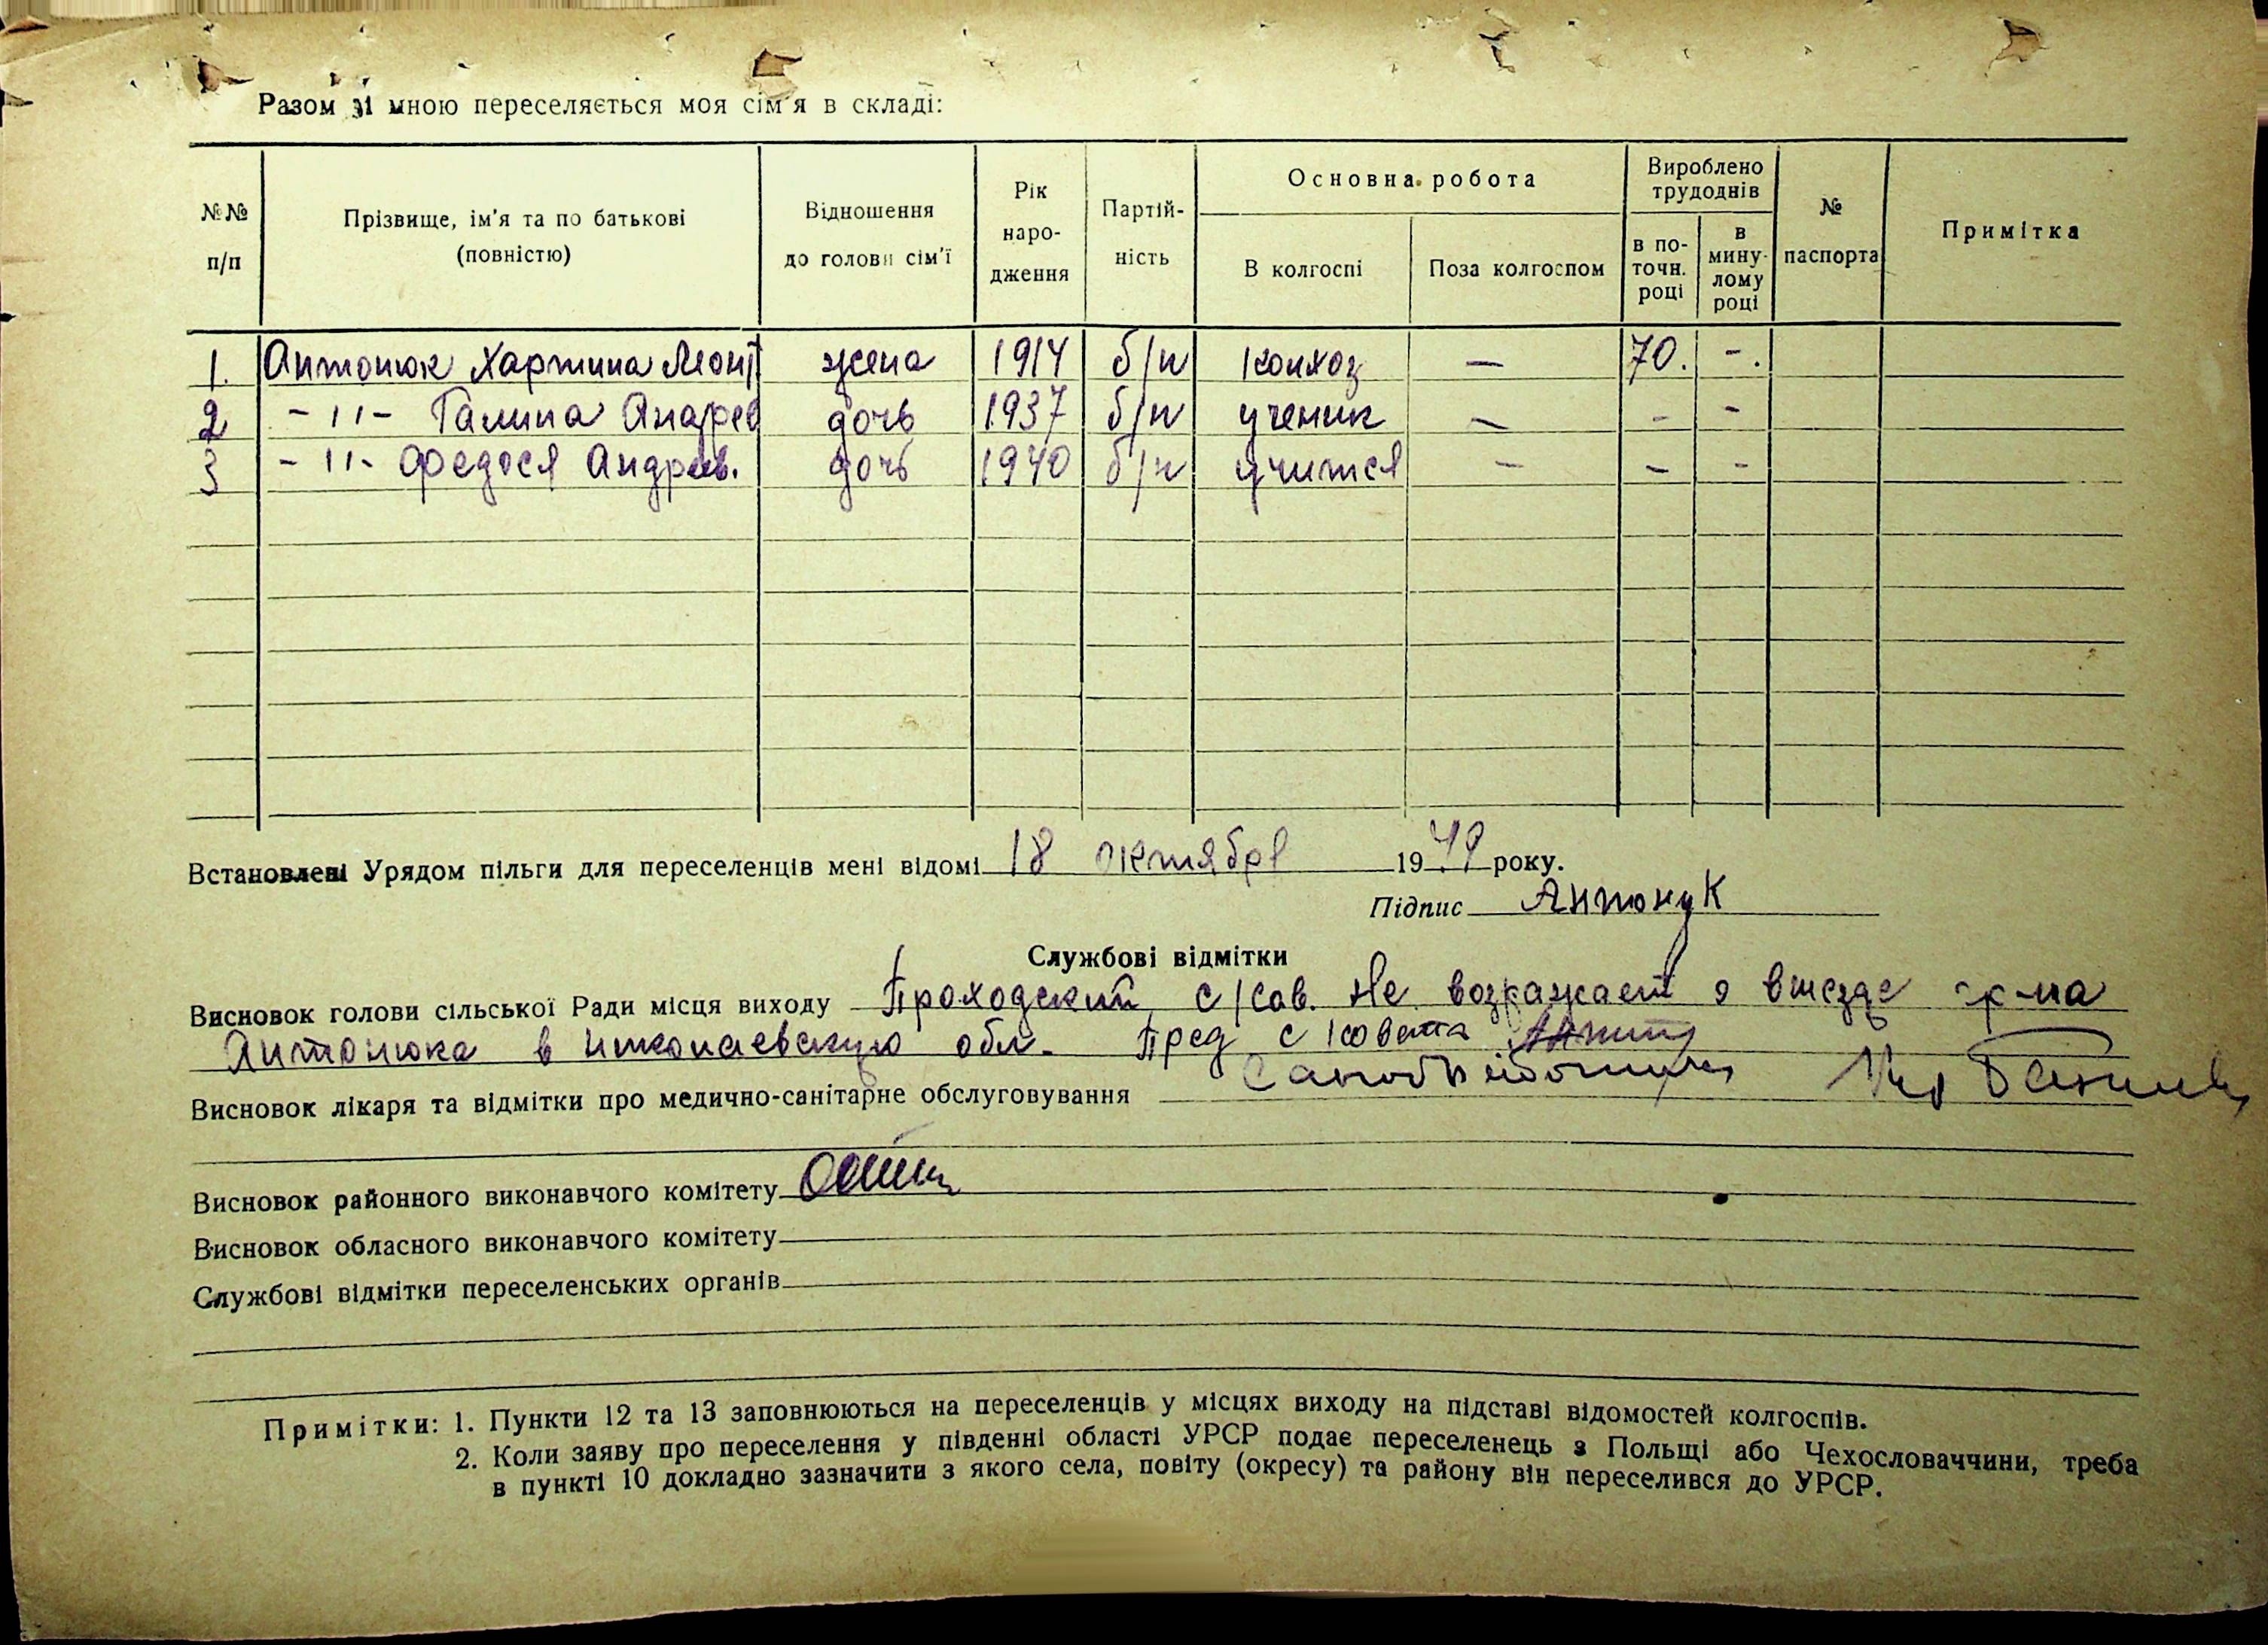 Разом зі мною переселяється моя сім'я в складі:
№№ п/п
Прізвище, ім'я та по батькові (повністю)
Відношення до голови сім'ї
Рік народження
Партійність
Основна робота
В колгоспі
Поза колгоспом
Вироблено трудоднів
в поточн. році
в минулому році
№ паспорта
Примітка
1. Антонюк Харитина Леонт жена 1914 б/п колхоз — 70. -.
2 -"- Галина Андрев дочь 1937 б/п ученик — - -
3 -"- Федося Андреев. дочь 1940 б/п учится - - -
Встановлені Урядом пільги для переселенців мені відомі 18 октября 1949 року.
Підпис Антонук
Службові відмітки
Висновок голови сільської Ради місця виходу Проходский с/сов. не возражает о выезде гр-на
Антонюка в николаевскую обл. Пред с/совета
Висновок лікаря та відмітки про медично-санітарне обслуговування
Висновок районного виконавчого комітету
Висновок обласного виконавчого комітету
Службові відмітки переселенських органів
Примітки: 1. Пункти 12 та 13 заповнюються на переселенців у місцях виходу на підставі відомостей колгоспів.
2. Коли заяву про переселення у південні області УРСР подає переселенець з Польщі або Чехословаччини, треба
в пункті 10 докладно зазначити з якого села, повіту (окресу) та району він переселився до УРСР.